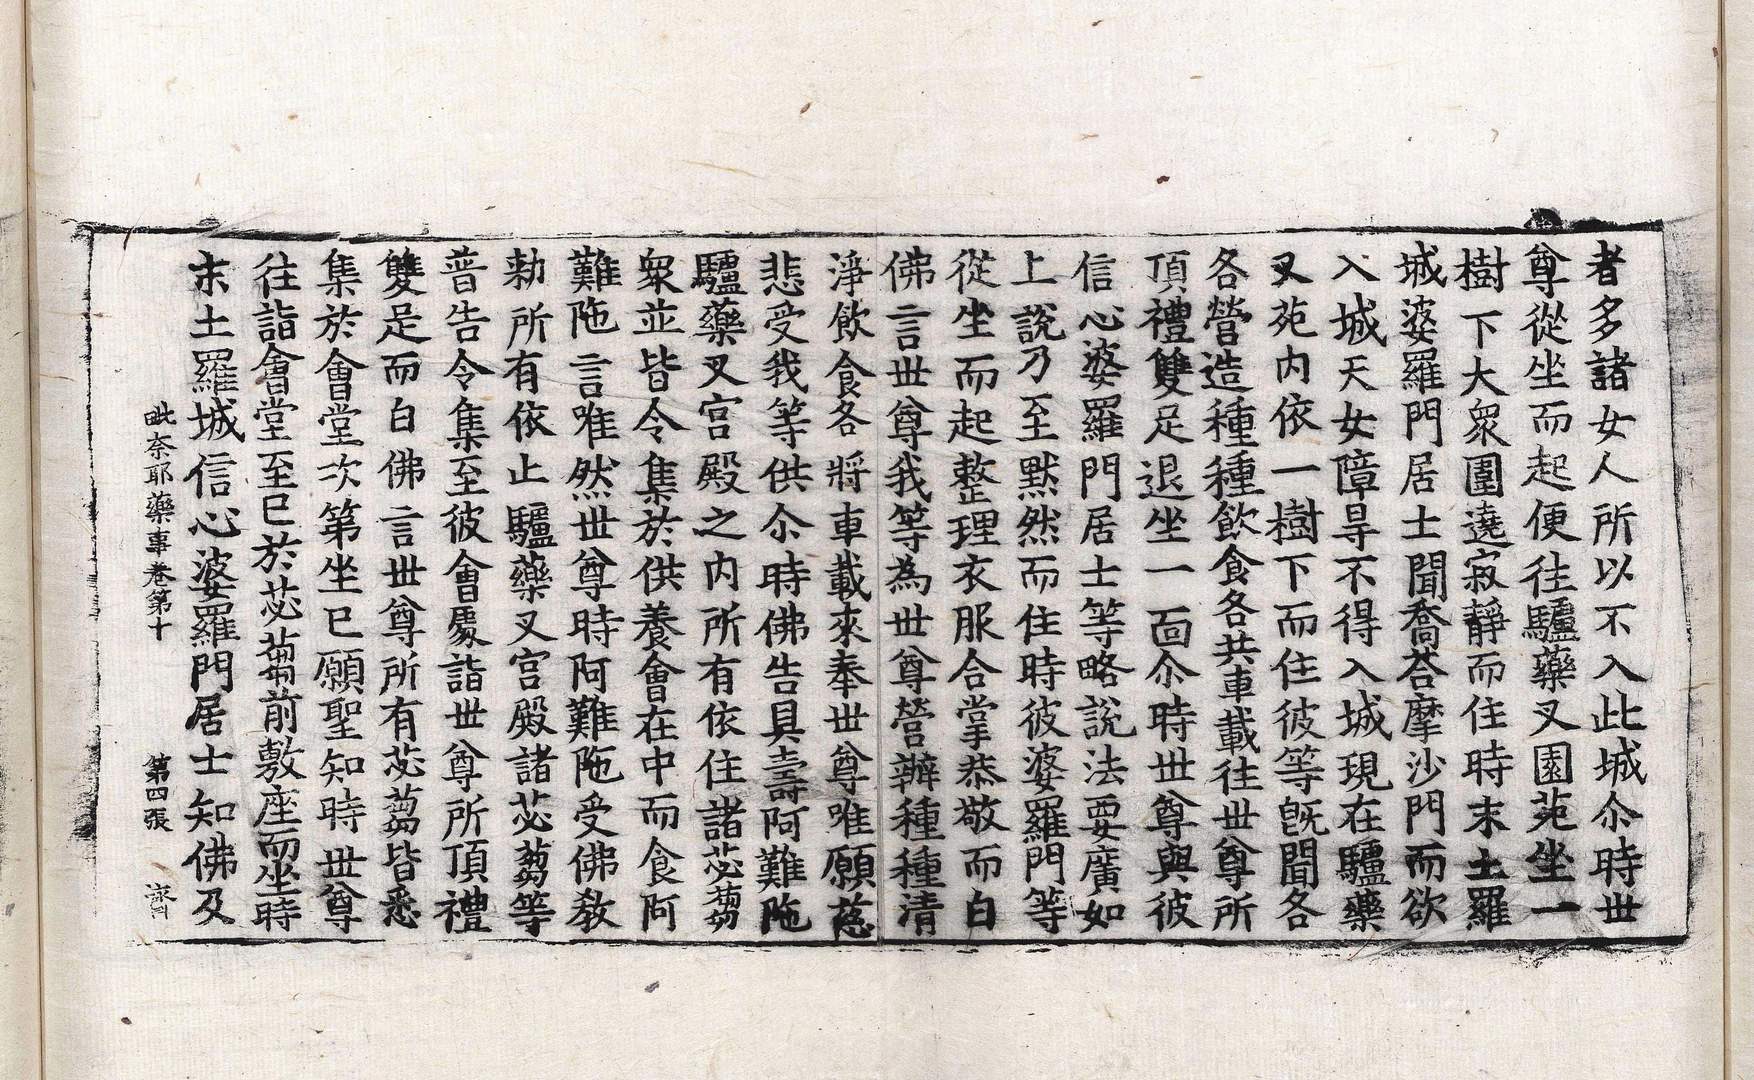 者多諸女人所以不入此城尒時世
尊從坐而起便往驢藥叉園苑坐一
樹下大衆圍遶寂靜而住時末土羅
城婆羅門居士聞喬荅摩沙門而欲
入城天女障㝵不得入城現在驢藥
叉苑内依一樹下而住彼等旣聞各
各營造種種飲食各共車載往世尊所
頂禮雙足退坐一面尒時世尊與彼
信心婆羅門居士等略說法要廣如
上說乃至默然而住時彼婆羅門等
從坐而起整理衣服合掌恭敬而白
佛言世尊我等為世尊營辦種種清
淨飲食各將車載來奉世尊唯願慈
悲受我等供尒時佛告具壽阿難陁
驢藥叉宮殿之内所有依住諸苾蒭
衆並皆令集於供養會在中而食阿
難陁言唯然世尊時阿難陁受佛教
勑所有依止驢藥叉宮殿諸苾蒭等
普告令集至彼會處詣世尊所頂禮
雙足而白佛言世尊所有苾蒭皆悉
集於會堂次第坐已願聖知時世尊
往詣會堂至已於苾蒭前敷座而坐時
末土羅城信心婆羅門居士知佛及
毗奈耶藥事卷第十 第四張